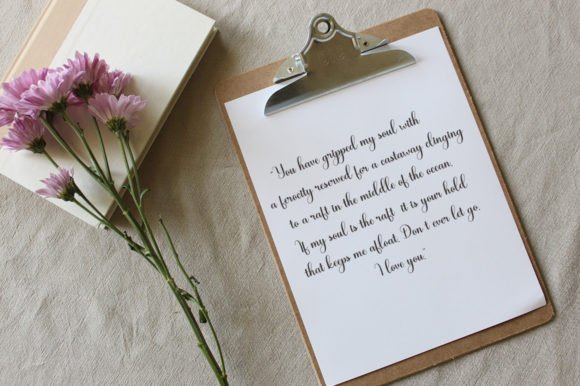 "You have gripped my soul with
a ferocity reserved for a castaway clinging
to a raft in the middle of the ocean.
If my soul is the raft it is your hold
that keeps me afloat. Don t ever let go.
I love you."